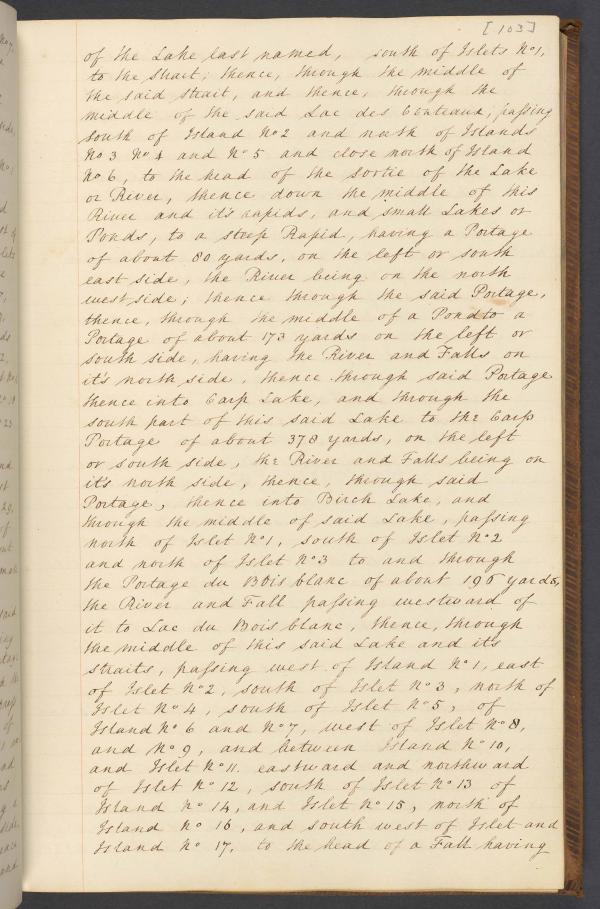 [103]
of the Lake last named, south of Islets No 1,
to the Strait; thence, through the middle of
the said Strait, and thence, through the
middle of the said Lac des Couteaux, passing
south of Island No 2 and north of Islands
No 3 No 4 and No 5 and close north of Island
No 6, to the head of the sortie of the Lake
or River, thence down the middle of this
River and it's rapids, and small Lakes or
Ponds, to a steep Rapid, having a Portage
of about 80 yards, on the left or south
east side, the River being on the north
west side; thence through the said Portage,
thence, through the middle of a Pond to a
Portage of about 173 yards on the left or
south side, having the River and Falls on
it's north side, thence through said Portage
thence into Carp Lake, and through the
south part of this said Lake to the Carp
Portage of about 378 yards, on the left
or south side, the River and Falls being on
it's north side, thence, through said
Portage, thence into Birch Lake, and
through the middle of said Lake, passing
north of Islet No 1, south of Islet No 2
and north of Islet No 3 to and through
the Portage du Bois blanc of about 196 yards,
the River and Fall passing westward of
it to Lac du Bois blanc, thence, through
the middle of this said Lake and its
straits, passing west of Island No 1, east
of Islet No 2, south of Islet No 3, north of
Islet No 4, south of Islet No 5, of
Island No 6 and No 7, west of Islet No 8,
and No 9, and between Island No 10,
and Islet No 11. eastward and northward
of Islet No 12, south of Islet No 13 of
Island No 14, and Islet No 15, north of
Island No 16, and south west of Islet and
Island No 17, to the head of a Fall having